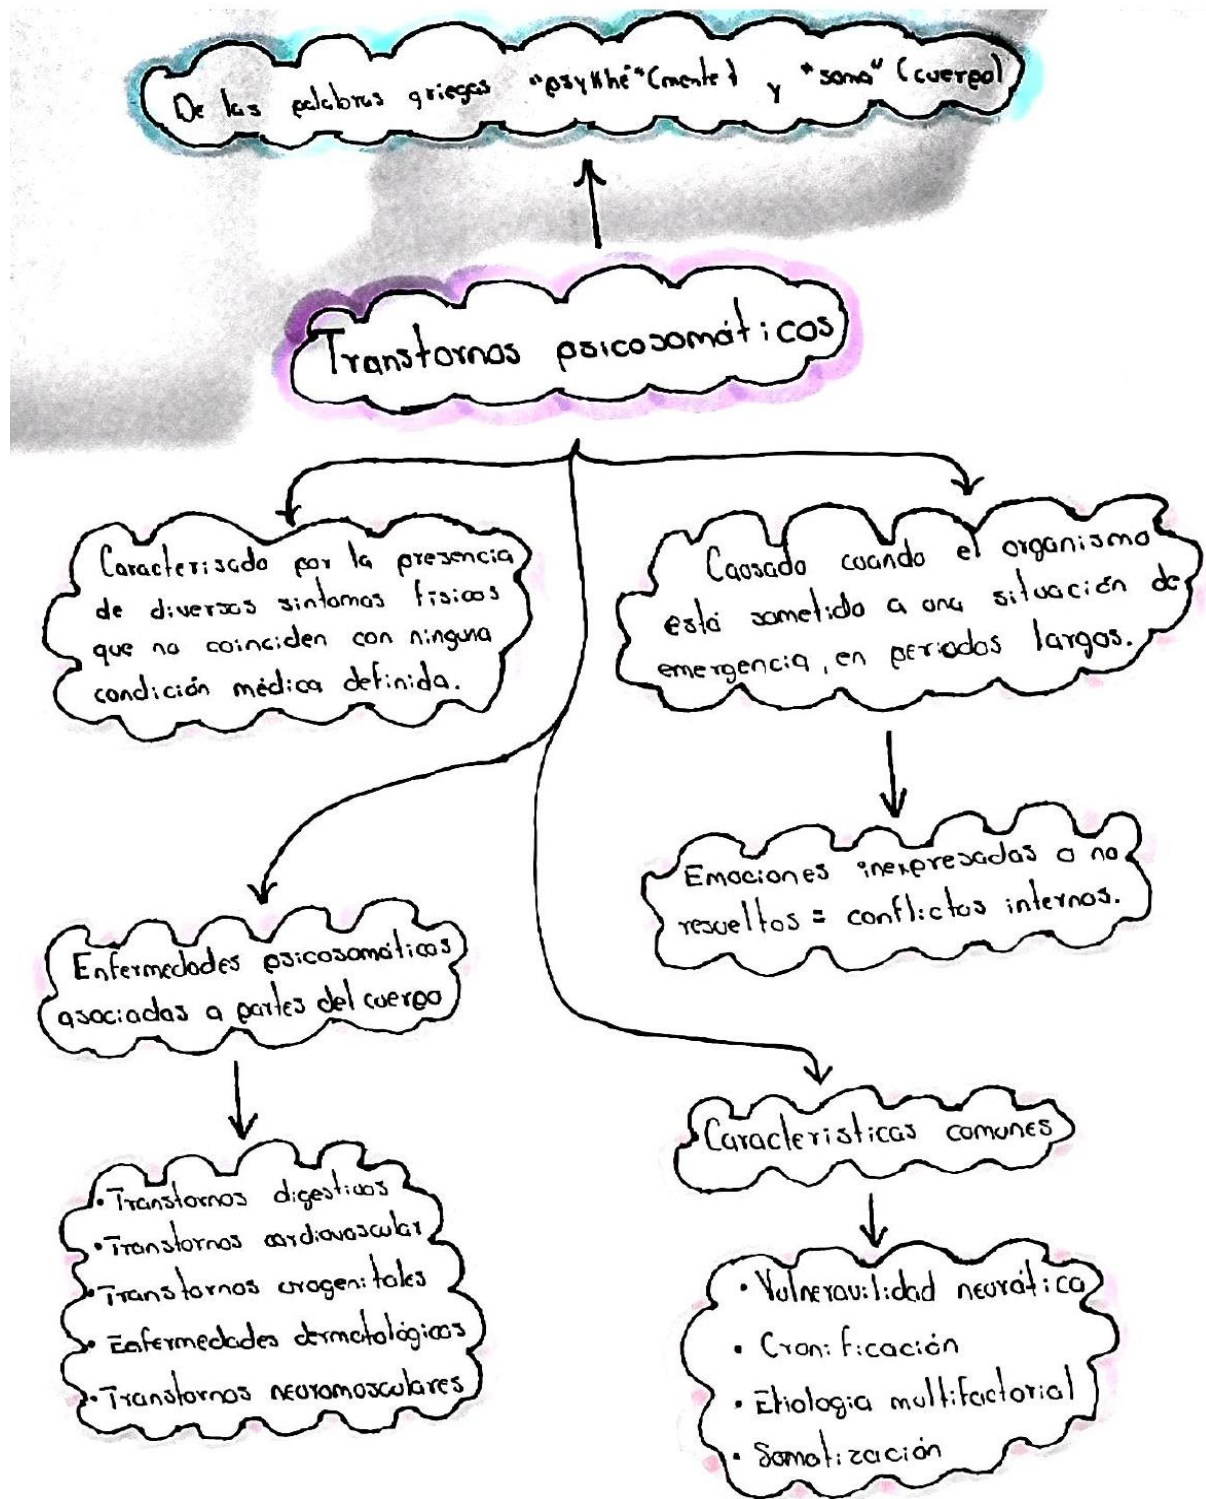 De las palabras griegas "psykhé" (mente) y "soma" (cuerpo)
Transtornos psicosomáticos
Caracterisado por la presencia
de diversos sintomas físicos
que no coinciden con ninguna
condición médica definida.
Causado cuando el organismo
está sometido a una situación de
emergencia, en periodos largos.
Emociones inexpresadas o no
resueltos = conflictos internos.
Enfermedades psicosomáticas
asociadas a partes del cuerpo
• Transtornos digestivos
• Transtornos cardiovascular
• Transtornos urogenitales
• Enfermedades dermatológicas
• Transtornos neuromusculares
Caracteristicas comunes
• Vulneravilidad neurótica
• Cronificación
• Etiologia multifactorial
• Somatización